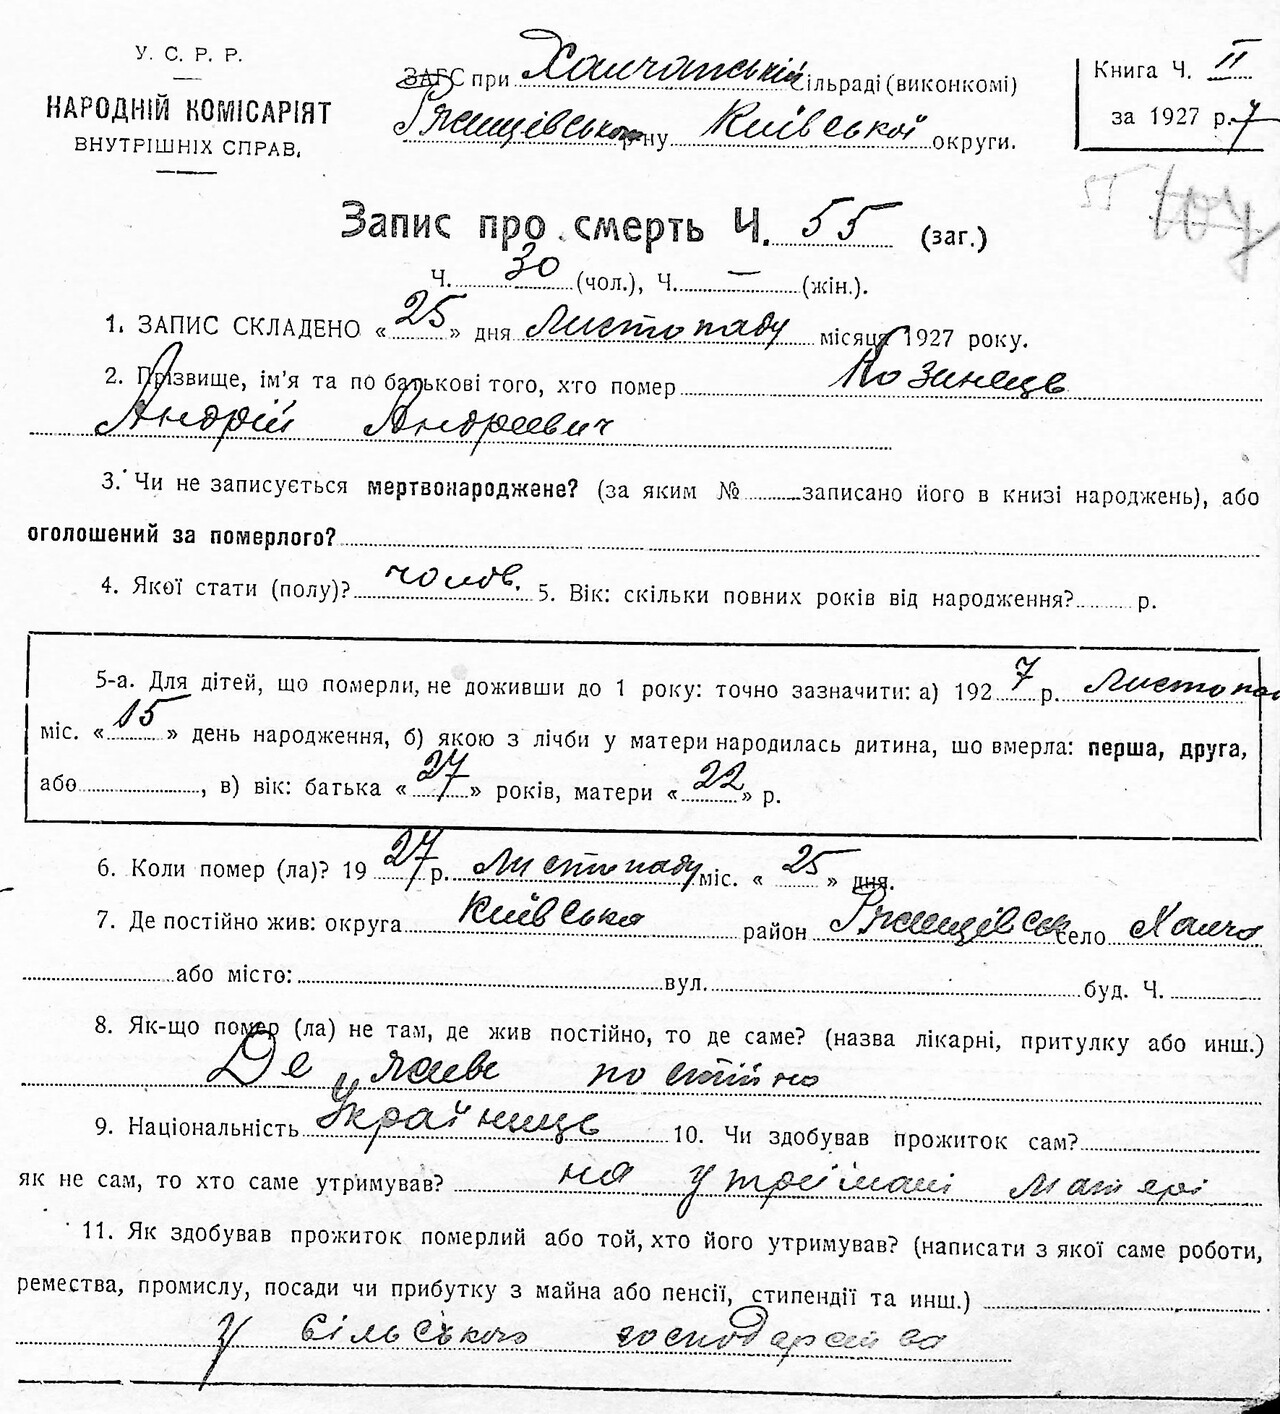 У. С. Р. Р.
НАРОДНІЙ КОМІСАРІЯТ
ВНУТРІШНІХ СПРАВ.
ЗАГС при Халчанській сільраді (виконкомі)
Ржищівському р-ну Київської округи.
Книга Ч. II
за 1927 р. 7
55
Запис про смерть Ч. 55 (заг.)
Ч. 30 (чол.), Ч. — (жін.).
1. ЗАПИС СКЛАДЕНО « 25 » дня Листопаду місяця 1927 року.
2. Прізвище, ім'я та по батькові того, хто помер Козинець
Андрій Андреевич
3. Чи не записується мертвонароджене? (за яким № записано його в книзі народжень), або
оголошений за померлого?
4. Якої стати (полу)? чолов. 5. Вік: скільки повних років від народження? р.
5-а. Для дітей, що померли, не доживши до 1 року: точно зазначити: а) 192 7 р. Листопад
міс. « 15 » день народження, б) якою з лічби у матери народилась дитина, що вмерла: перша, друга,
або , в) вік: батька « 27 » років, матери « 22 » р.
6. Коли помер (ла)? 19 27 р. Листопаду міс. « 25 » дня.
7. Де постійно жив: округа Київська район Ржищівськ село Халча
або місто: вул. буд. Ч.
8. Як-що помер (ла) не там, де жив постійно, то де саме? (назва лікарні, притулку або инш.)
Де жиє постійно
9. Національність Українець 10. Чи здобував прожиток сам?
як не сам, то хто саме утримував? на утріїмані матері
11. Як здобував прожиток померлий або той, хто його утримував? (написати з якої саме роботи,
ремества, промислу, посади чи прибутку з майна або пенсії, стипендії та инш.)
У сільського господарства